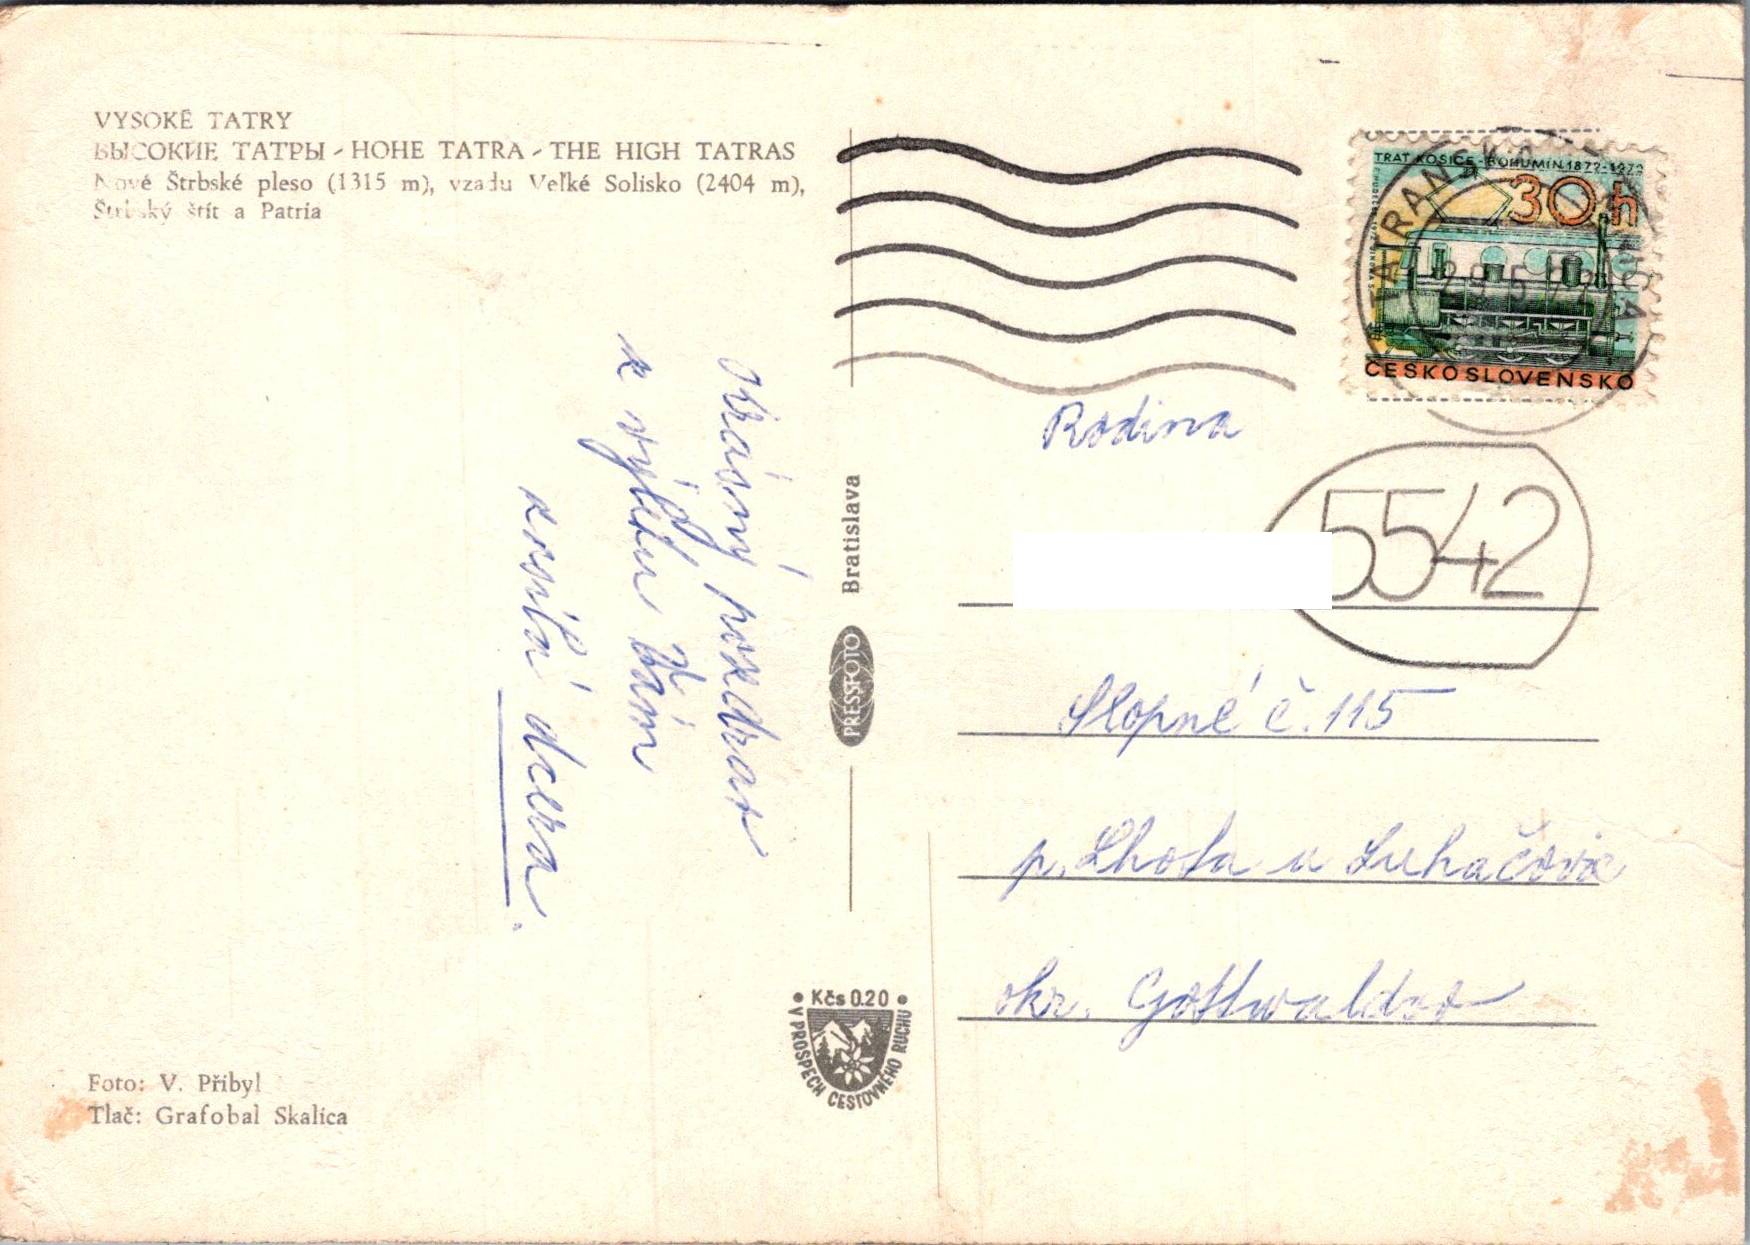 VYSOKÉ TATRY
ВЫСОКИЕ ТАТРЫ - HOHE TATRA - THE HIGH TATRAS
Nové Štrbské pleso (1315 m), vzadu Veľké Solisko (2404 m),
Štrbský štít a Patria
Krásný pozdrav
z výletu Vám
zasílá dcera.
Foto: V. Přibyl
Tlač: Grafobal Skalica
PRESSFOTO Bratislava
• Kčs 0.20 •
V PROSPECH CESTOVNÉHO RUCHU
TRAŤ KOŠICE - BOHUMÍN 1872-1972
30 h
ČESKOSLOVENSKO
TATRANSKÁ
29.5.72
5542
Rodina
Slopné č. 115
p. Lhota u Luhačovic
okr. Gottwaldov